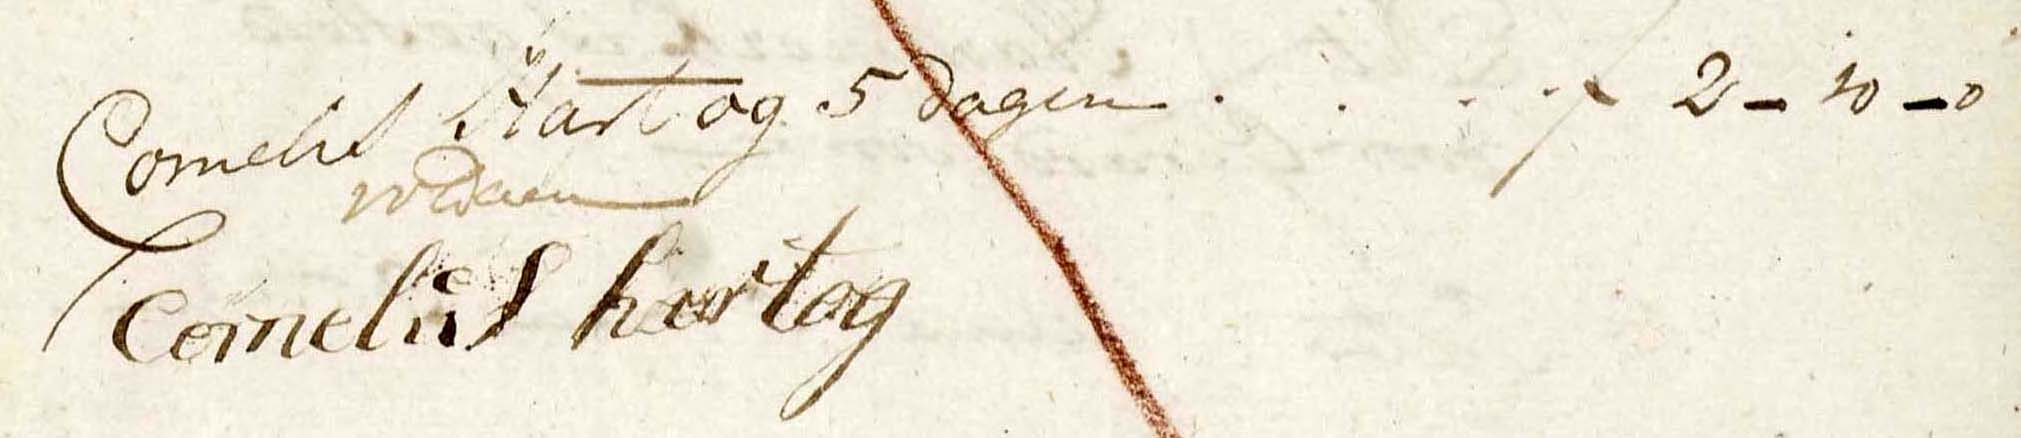 Cornelis Hartog 5 dagen . . . . f 2 - 10 - 0
voldaen
Cornelis hartog